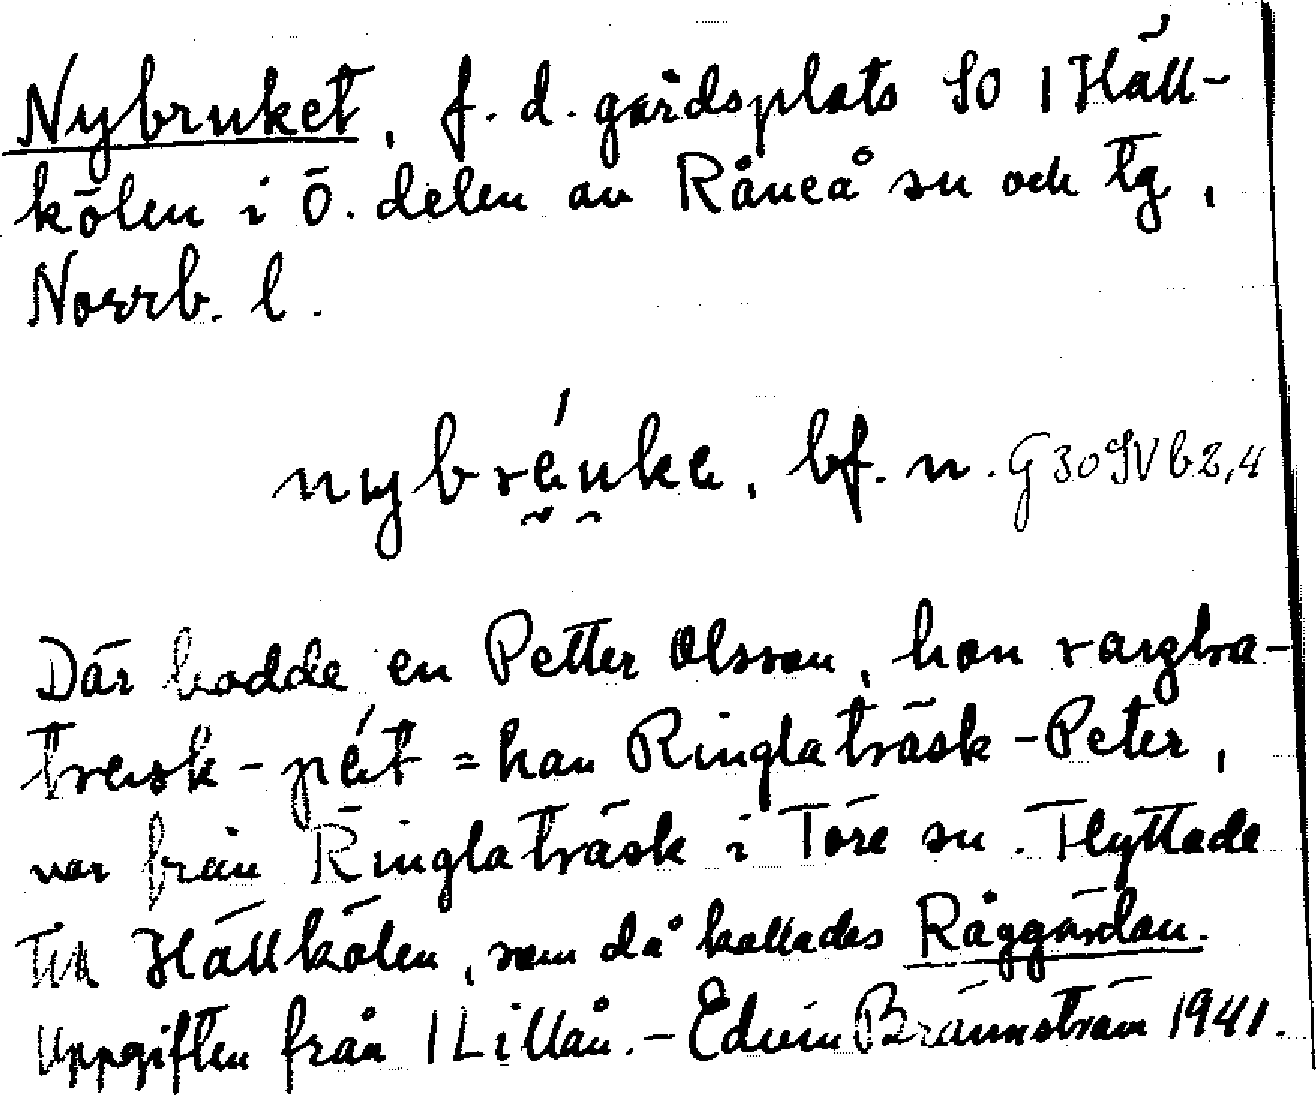 Nybruket, f. d. gårdsplats SO 1 Häll-
kölen i Ö. delen av Råneå sn och tg,
Norrb. l.
nybrèuke, bf. n. G 30 SV b 2,4
Där bodde en Petter Olsson, han rargla-
treisk-pét = han Ringlaträsk-Peter,
var från Ringlaträsk i Töre sn. Flyttade
till Hällkölen, som då kallades Råggårdan.
Uppgiften från 1 Lillån. – Edvin Brännström 1941.